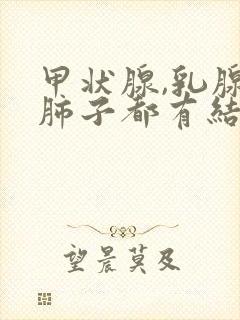 甲状腺,乳腺
肺子都有结
望晨莫及